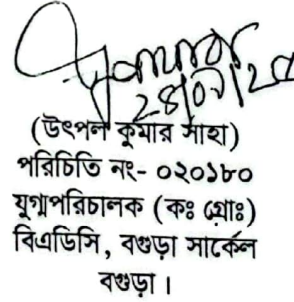 (উৎপল কুমার সাহা)
পরিচিতি নং- ০২০১৮০
যুগ্মপরিচালক (কঃ গ্রোঃ)
বিএডিসি, বগুড়া সার্কেল
বগুড়া।